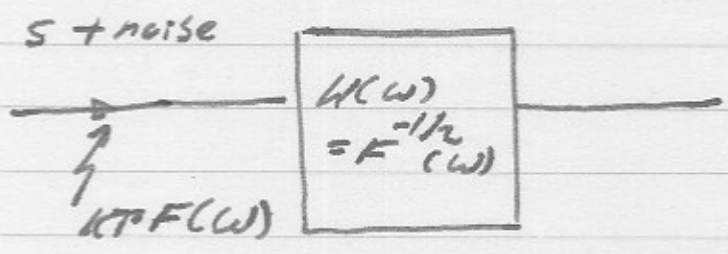 s + noise
H(ω)
= F^-1/2 (ω)
kT F(ω)